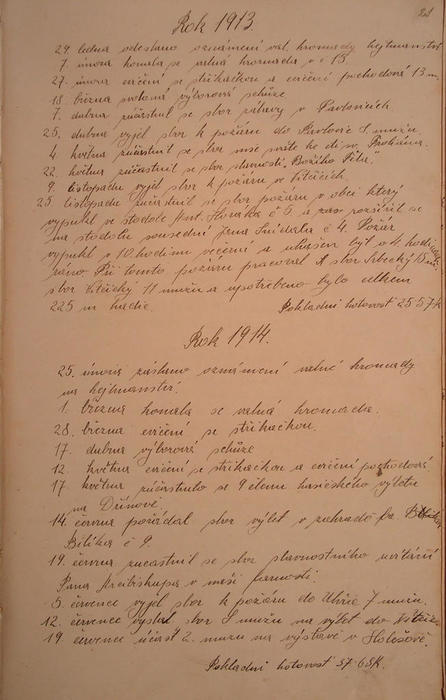 Rok 1913.
29. ledna odesláno oznámení val. hromady hejtmanství
7. února konala se valná hromada v č 13
27. února cvičení se stříkačkou a cvičení pochodová 13 m.
18. března svolaná výborová schůze
7. dubna zúčastnil se sbor zábavy v Pavlovicích
25. dubna vyjel sbor k požáru do Pavlovic 8 mužů.
4. května zúčastnil se sbor mše svaté ke cti sv. Floriana.
22. května zúčastnil se sbor slavnosti „Božího Těla"
9. listopadu vyjel sbor k požáru v
25. listopadu zúčastnil se sbor požáru v obci který
vypukl ve stodole Ant. č 5 a zas rozšířil se
na stodolu sousední Jana č 4. Požár
vypukl v 10 hodin večerní a uhašen byl o 4 hod.
ráno Při tomto požáru pracoval sbor 15 m.
sbor 11 mužů a upotřebeno bylo celkem
225 m hadic.
Pokladní hotovost 25 57 K
Rok 1914.
25. února zasláno oznámení valné hromady
na hejtmanství.
1. března konala se valná hromada.
28. března cvičení se stříkačkou.
17. dubna výborová schůze
12. května cvičení se stříkačkou a cvičení pochodová
17 května zúčastnilo se 9 členů hasičského výletu
na Dřínově.
14. června pořádal sbor výlet v zahradě br.
Bilíka č 9.
19. června zúčastnil se sbor slavnostního uvítání
Pana Arcibiskupa v naší farnosti.
5. července vyjel sbor k požáru do Uhřic 7 mužů.
12. července vyslal sbor 8 mužů na výlet do
19. července účast 2. mužů na výstavě v Holešově.
Pokladní hotovost 57 68 K.